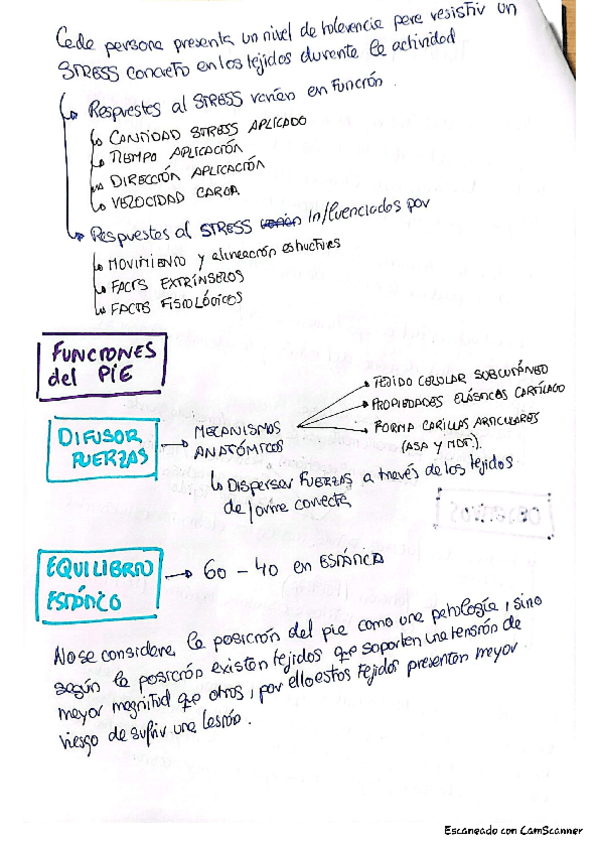 Cada persona presenta un nivel de tolerancia para resistir un
STRESS concreto en los tejidos durante la actividad
Respuestas al STRESS varían en función.
CANTIDAD STRESS APLICADO
TIEMPO APLICACIÓN
DIRECCIÓN APLICACIÓN
VELOCIDAD CARGA
Respuestas al STRESS varían influenciados por
MOVIMIENTO y alineación estructuras
FACTS EXTRÍNSECOS
FACTS FISIOLÓGICOS
FUNCIONES
del PIE
TEJIDO CELULAR SUBCUTÁNEO
PROPIEDADES ELÁSTICAS CARTÍLAGO
FORMA CARILLAS ARTICULARES
(ASA y MDT).
DIFUSOR
FUERZAS
MECANISMOS
ANATÓMICOS
DISPERSAR FUERZAS a través de los tejidos
de forma correcta
EQUILIBRIO
ESTÁTICO
60 - 40 en ESTÁTICA
No se considera la posición del pie como una patología, sino
según la posición existen tejidos que soporten una tensión de
mayor magnitud que otros, por ello estos tejidos presentan mayor
riesgo de sufrir una lesión.
Escaneado con CamScanner